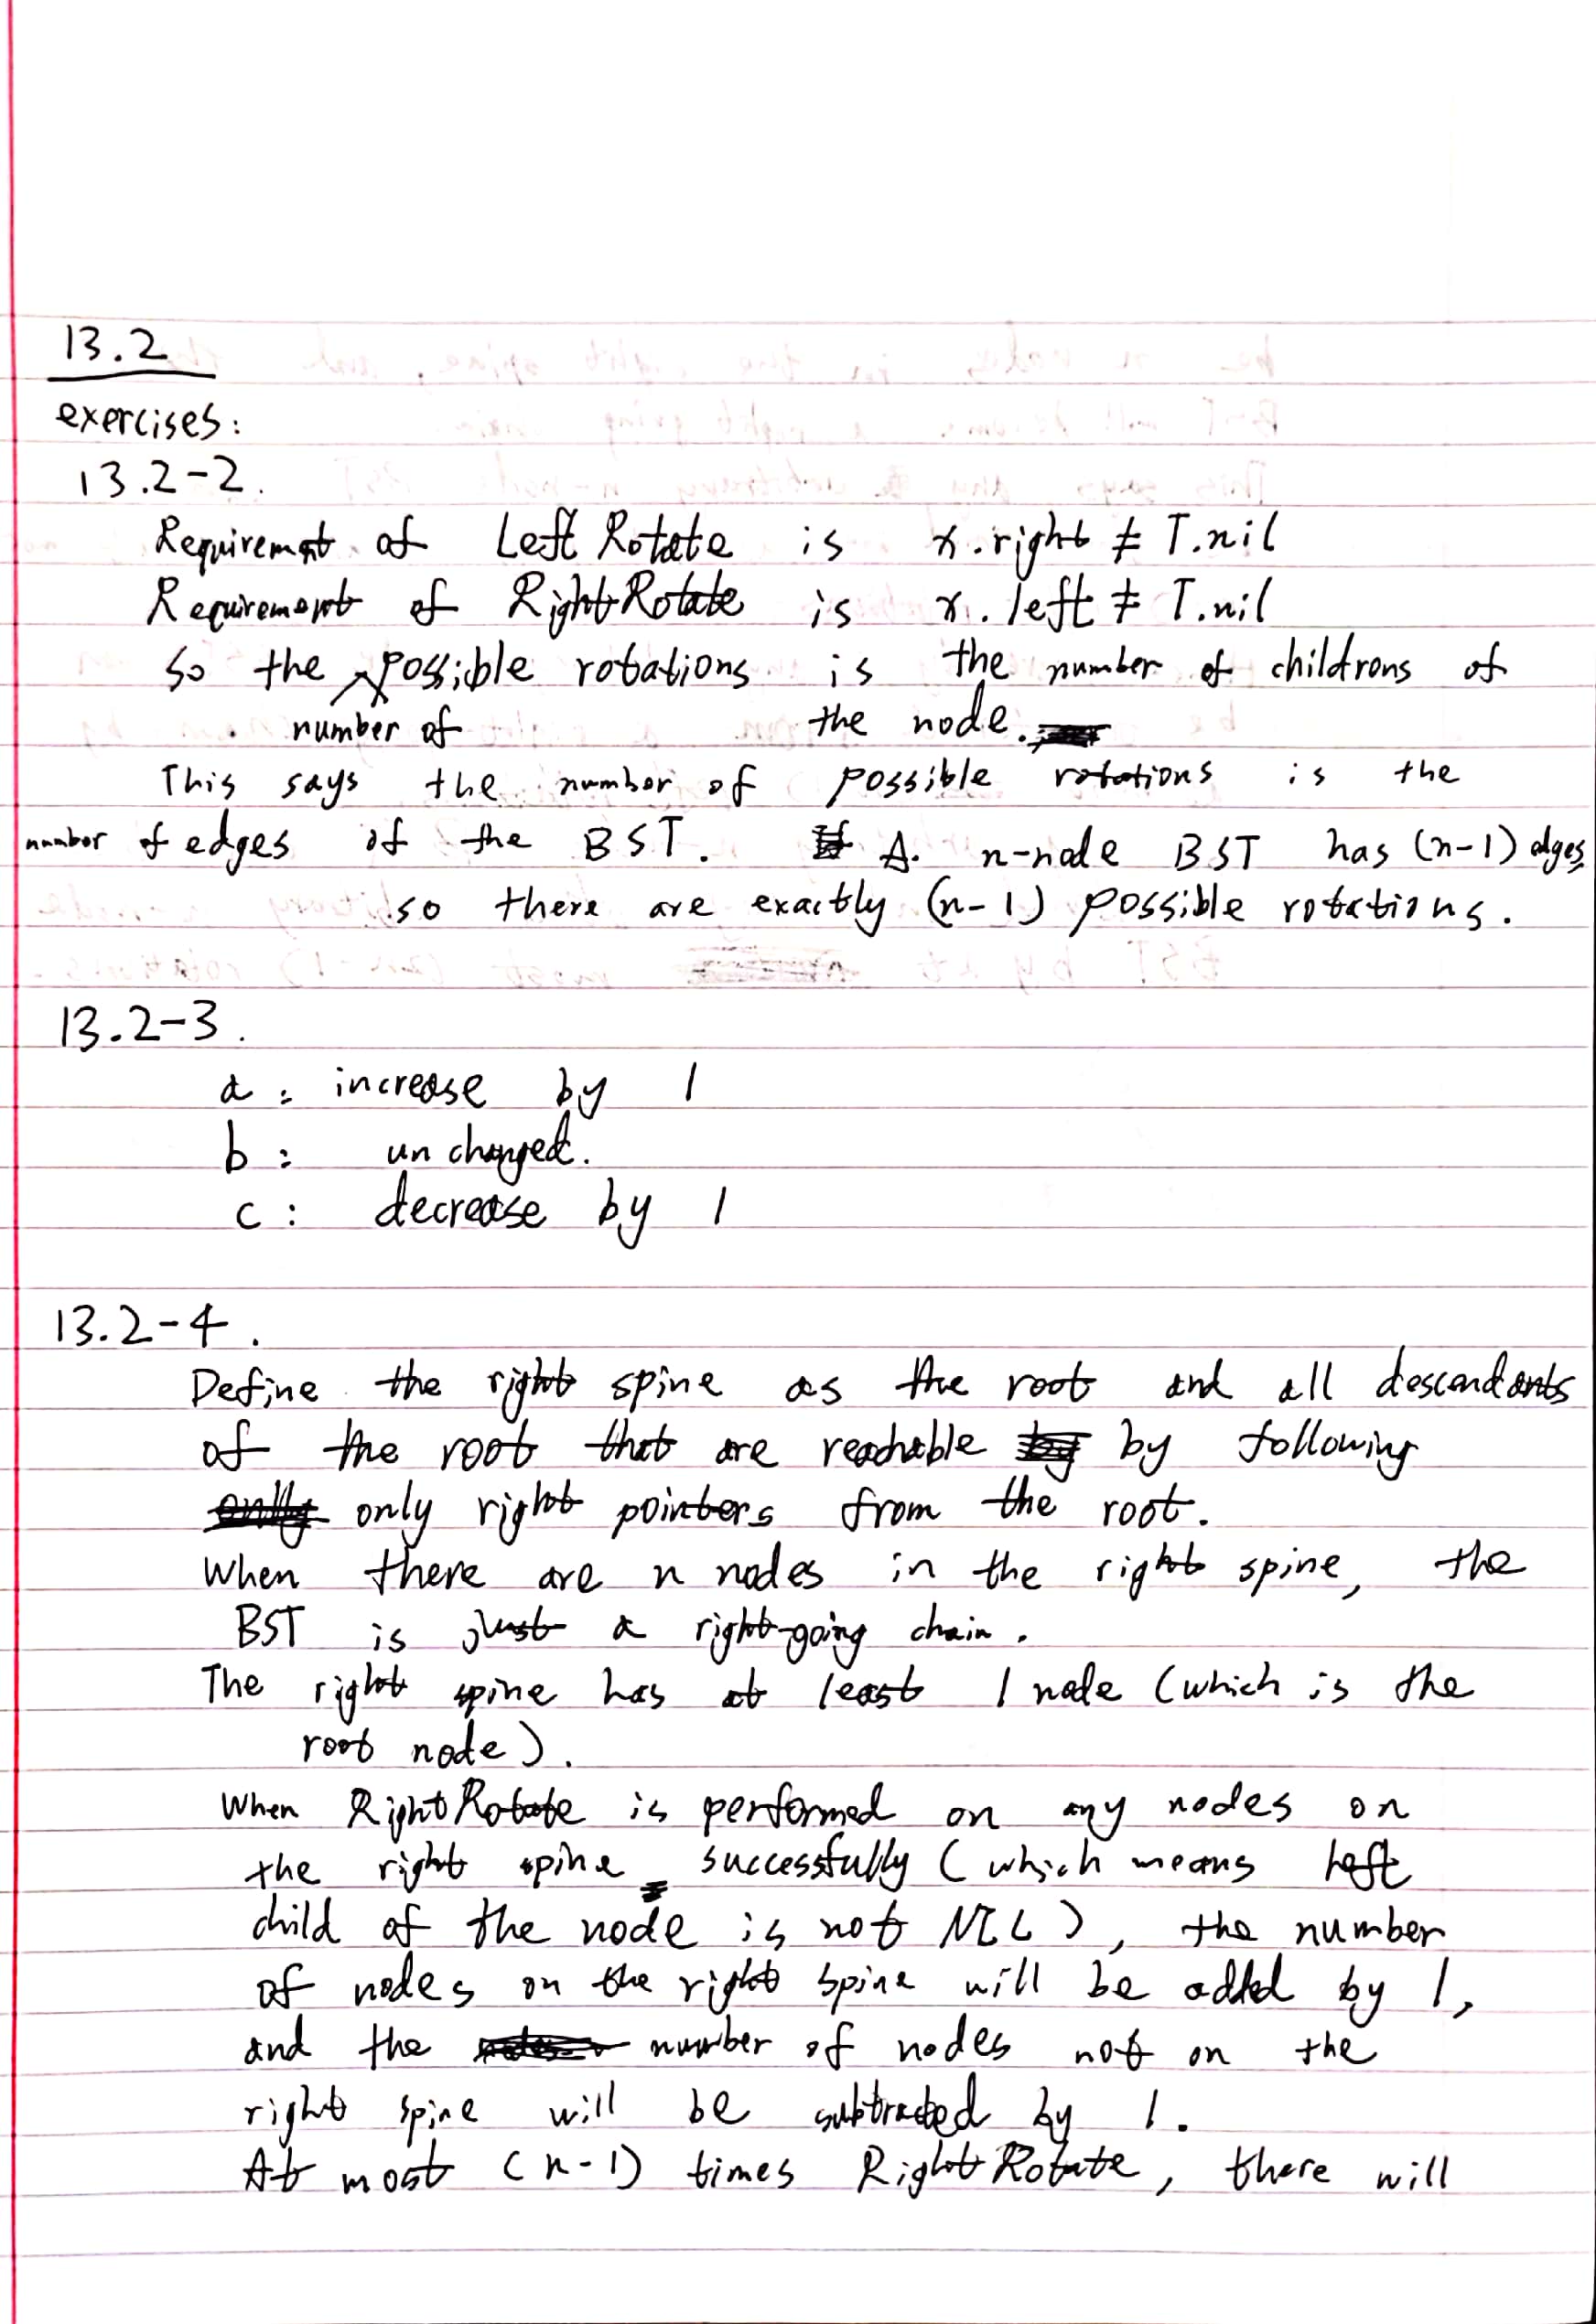 13.2
exercises:
13.2-2.
Requiremnt of Left Rotate is x.right ≠ T.nil
Requirement of Right Rotate is x.left ≠ T.nil
So the possible rotations is the number of childrens of
number of the node.
This says the number of possible rotations is the
number of edges of the BST. A. n-node BST has (n-1) edges
so there are exactly (n-1) possible rotations.
13.2-3.
a: increase by 1
b: unchanged.
c: decrease by 1
13.2-4.
Define the right spine as the root and all descendants
of the root that are reachable by following
only right pointers from the root.
When there are n nodes in the right spine, the
BST is just a right-going chain.
The right spine has at least 1 node (which is the
root node).
When Right Rotate is performed on any nodes on
the right spine successfully (which means left
child of the node is not NIL), the number
of nodes on the right spine will be added by 1,
and the number of nodes not on the
right spine will be subtracted by 1.
At most (n-1) times Right Rotate, there will